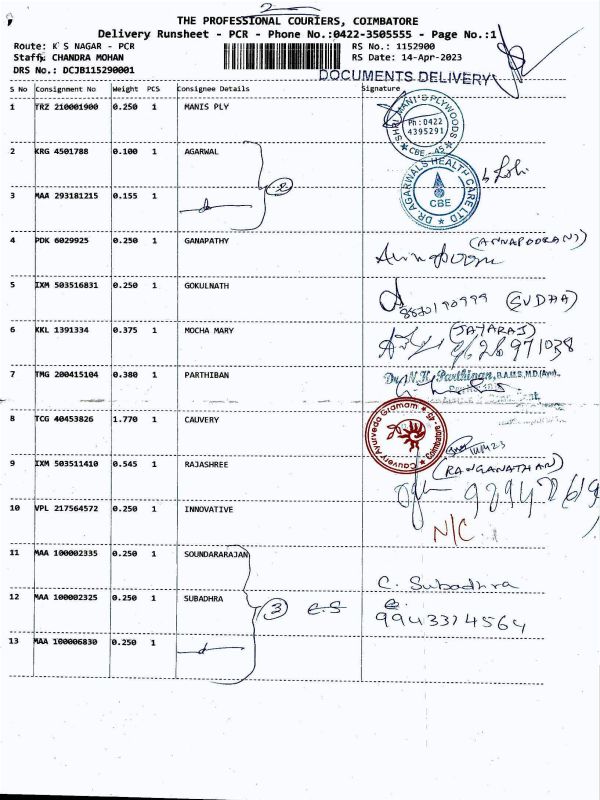 2
THE PROFESSIONAL COURIERS, COIMBATORE
Delivery Runsheet - PCR - Phone No.:0422-3505555 - Page No.:1
Route: K S NAGAR - PCR RS No.: 1152900
Staff: CHANDRA MOHAN RS Date: 14-Apr-2023
DRS No.: DCJB115290001
DOCUMENTS DELIVERY
S No Consignment No Weight PCS Consignee Details Signature
1 TRZ 210001900 0.250 1 MANIS PLY
SHRI MANI'S PLYWOODS
Ph : 0422
4395291
CBE - 45
2 KRG 4501788 0.100 1 AGARWAL
3 MAA 293181215 0.155 1
2
DR AGARWALS HEALTH CARE LTD
CBE
4 PDK 6029925 0.250 1 GANAPATHY
(ANNAPOORANI)
5 IXM 503516831 0.250 1 GOKULNATH
(SUDHA)
6 KKL 1391334 0.375 1 MOCHA MARY
(JAYARAJ)
7 TMG 200415104 0.380 1 PARTHIBAN
Dr. N.K. Parthipan, B.A.M.S, M.D.(Ayu).
8 TCG 40453826 1.770 1 CAUVERY
Cauvery Ayurveda Gramam
Coimbatore - 45
9 IXM 503511410 0.545 1 RAJASHREE
(RANGANATHAN)
10 VPL 217564572 0.250 1 INNOVATIVE
N/C
11 MAA 100002335 0.250 1 SOUNDARARAJAN
12 MAA 100002325 0.250 1 SUBADHRA
3
C. Subadhra
9943374564
13 MAA 100006830 0.250 1